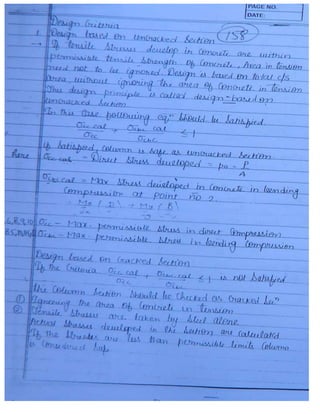 PAGE NO.
DATE:
Design Criteria
158
1. Design based on Uncracked Section
If tensile Stresses develop in Concrete are within
permissible tensile strength of Concrete, Area in tension
need not to be ignored. Design is based on total c/s
area without ignoring the area of Concrete in tension
This design principle is called design based on
uncracked section
In this Case following eqn should be Satisfied.
σcc cal / σcc + σcbc cal / σcbc ≤ 1
If Satisfied, Column is Safe as uncracked Section
here σcc cal - Direct Stress developed = P/A
σcbc cal = Max Stress developed in Concrete in bending
Compression at point no 2.
σcc - Max. permissible stress in direct Compression
σcbc - Max. permissible stress in bending Compression
Design based on Cracked Section
If the Criteria σcc cal / σcc + σcbc cal / σcbc ≤ 1 is not Satisfied
the Column Section Should be Checked as Cracked
① Ignoring the area of Concrete in Tension
② Tensile Stresses are taken by Steel alone
Actual Stresses developed in the Section are Calculated
If the Stresses are less than permissible limits Column
is Considered Safe